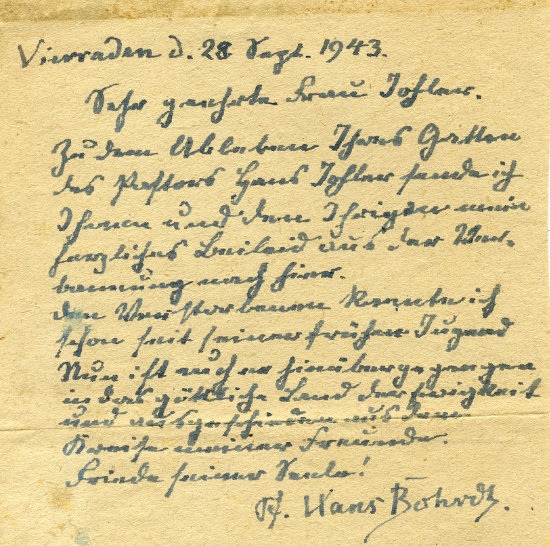 Vierraden d. 28 Sept. 1943.
Sehr geehrte Frau Iohler.
Zu dem Ableben Ihres Gatten
des Pastors Hans Iohler sende ich
Ihnen und den Ihrigen mein
herzliches Beileid aus der Ver-
bannung nach hier.
Den Verstorbenen kannte ich
schon seit seiner frühen Jugend
Nun ist auch er hinüber gegangen
in das göttliche Land der Ewigkeit
und ausgeschieden aus dem
Kreise meiner Freunde.
Friede seiner Seele!
Hans Bohrdt.